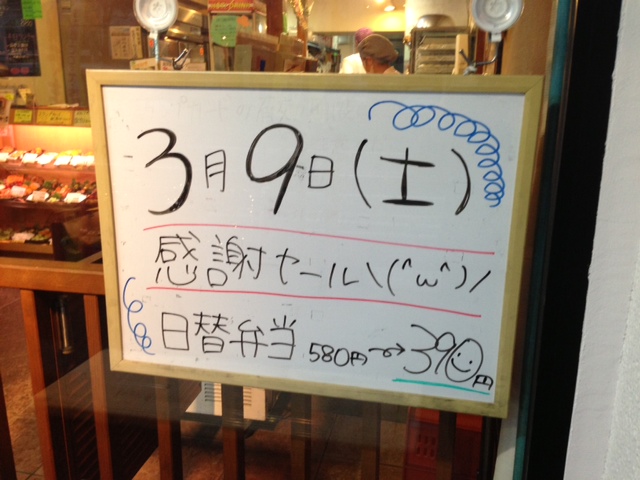 3月9日(土)
感謝セール\(^ω^)/
日替弁当 580円→390円